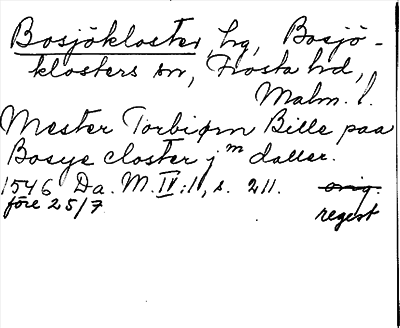 Bosjökloster, hg, Bosjö-
klosters sn, Frosta hd,
Malm. l.
Mester Torbiørn Bille paa
Bosye closter j m daller.
1546 Da. M. IV:1, s. 211. orig.
före 25/7 regest